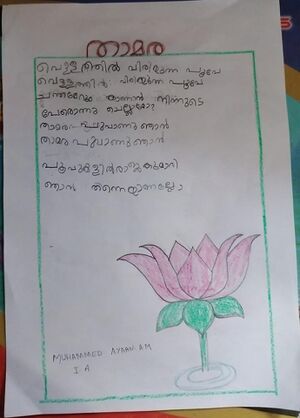 താമര
വെള്ളത്തിൽ വിരിയുന്ന പൂവേ
വെള്ളത്തിൽ വിരിയുന്ന പൂവേ
നിന്നുടെ
പേരൊന്നു ചൊല്ലാമോ?
താമര പൂവാണു ഞാൻ
താമര പൂവാണു ഞാൻ
ഞാൻ തന്നെയാണല്ലോ
MUHAMMED AYAAN AM
I A